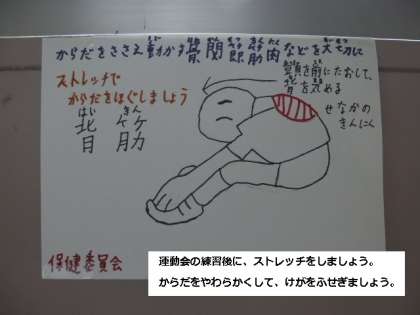 からだをささえ動かす骨 関節 筋肉などを大切に
ストレッチで
からだをほぐしましょう
はい きん
背筋
頭を前にたおして、
背を丸める
せなかの
きんにく
保健委員会
運動会の練習後に、ストレッチをしましょう。
からだをやわらかくして、けがをふせぎましょう。